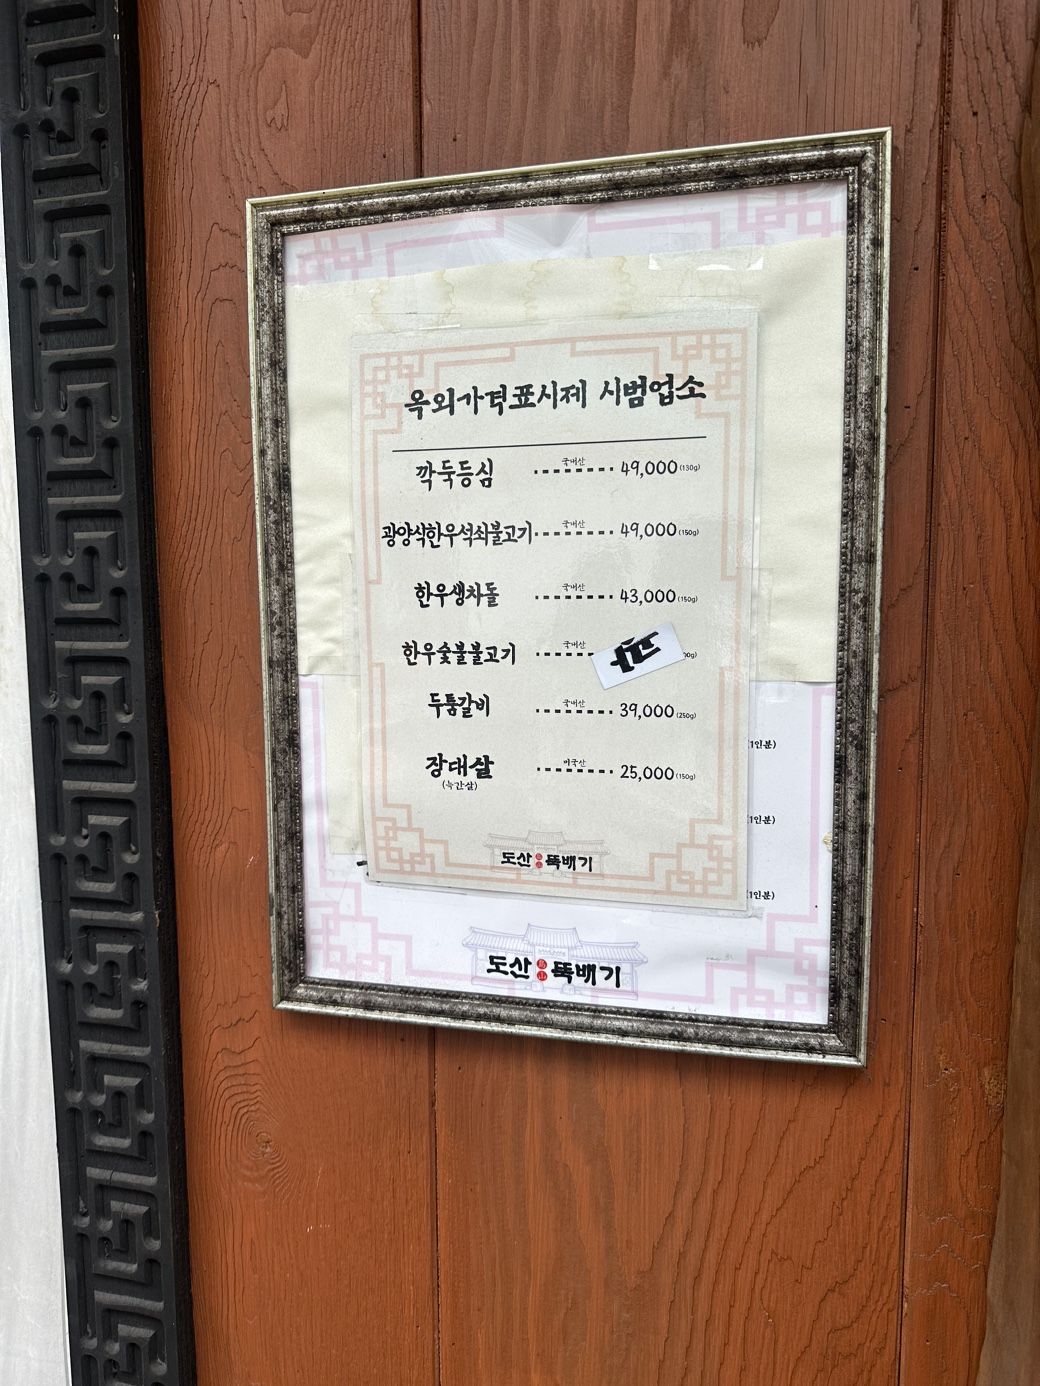 옥외가격표시제 시범업소
깍둑등심 국내산 49,000(130g)
광양식한우석쇠불고기 국내산 49,000(150g)
한우생차돌 국내산 43,000(150g)
한우숯불불고기 국내산
두툼갈비 국내산 39,000(250g)
장대살 미국산 25,000(150g)
(늑간살)
도산 뚝배기
(1인분)
(1인분)
(1인분)
도산 뚝배기